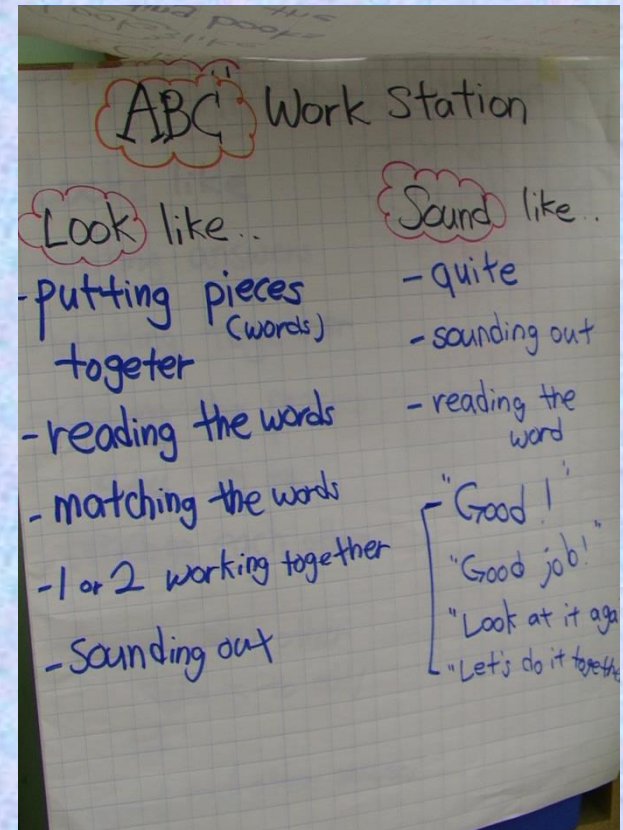 ABC Work Station
Look like..
- putting pieces
(words)
togeter
- reading the words
- matching the words
- 1 or 2 working together
- Sounding out
Sound like..
- quite
- sounding out
- reading the
word
- "Good!"
"Good job!"
"Look at it aga
- "Let's do it togethe